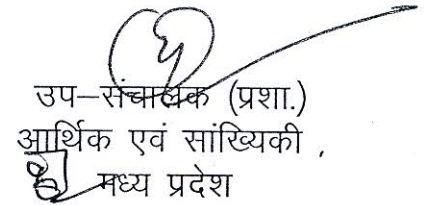 उप–संचालक (प्रशा.)
आर्थिक एवं सांख्यिकी ,
मध्य प्रदेश